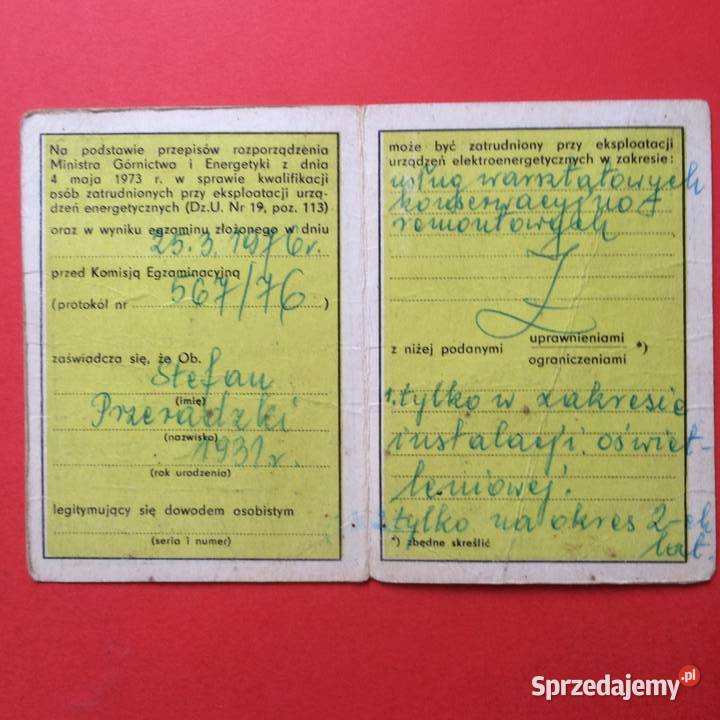 Na podstawie przepisów rozporządzenia
Ministra Górnictwa i Energetyki z dnia
4 maja 1973 r. w sprawie kwalifikacji
osób zatrudnionych przy eksploatacji urzą-
dzeń energetycznych (Dz.U. Nr 19, poz. 113)
oraz w wyniku egzaminu złożonego w dniu
25.3.1976r.
przed Komisją Egzaminacyjną
(protokół nr 567/76 )
zaświadcza się, że Ob.
Stefan
(imię)
Przeradzki
(nazwisko)
1931 r.
(rok urodzenia)
legitymujący się dowodem osobistym
(seria i numer)
może być zatrudniony przy eksploatacji
urządzeń elektroenergetycznych w zakresie:
usług warsztatowych
konserwacyjno-
remontowych
z niżej podanymi uprawnieniami *)
ograniczeniami
1. tylko w zakresie
instalacji oświet-
leniowej.
2. tylko na okres 2-ch
lat.
*) zbędne skreślić
Sprzedajemy.pl